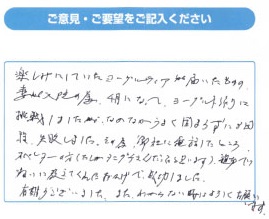 ご意見・ご要望をご記入ください
楽しみにしていたヨーグルティアが届いたものの、
妻が入院の為、4月になって、ヨーグルト作りに
挑戦しましたが、なかなかうまく固まらずに2回
程、失敗しました。その後、御社に電話したところ、
オペレーターの方(たしかタニグチさんだったと思います)、親切で
ねいに教えてくれたおかげで、成功しました。
有難うございました。また、わからない時はよろしくお願い
します。